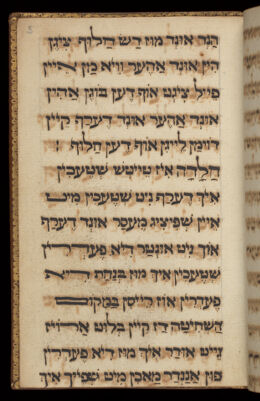 הנה אונד מוז דש חלוף ציגן
הין אונד אהער וויא מן איין
פייל ציגט אוף דען בוגן אהין
אונד אהער אונד דערף קיין
דומן לייגן אוף דען חלוף :
חלדה איז טייטש שטעכין
איך דערף ניט שטעכין מיט
איין שפיציג מעסר אונד דערף
אוך ניט אונטר דיא פעדרין
שטעכין איך מוז בנהת דיא
פעדרין אויז רייסן במקום
השחיטה דז קיין בלוט ארויז
גייט אודר איך מוז דיא פעדרין
פון אננדר מאכן מיט שפייך איך